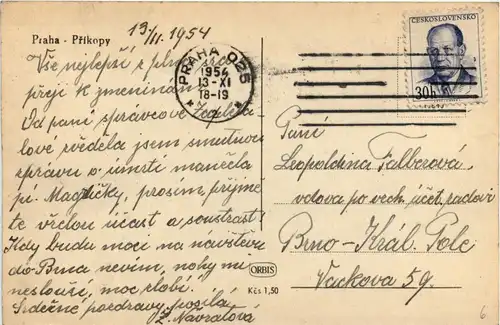 Praha - Příkopy
13/11. 1954
Vše nejlepší z plna srdce
přeji k jmeninám.
Od paní správcové
lové zvěděla jsem smutnou
zprávu o úmrtí manžela
pí. prosím přijměte
vřelou účast a soustrast!
Kdy budu moci na návštěvu
do Brna nevím, nohy mi
neslouží, moc zlobí.
Srdečné pozdravy posílá
Z. Navrátilová
PRAHA 025
1954
13-XI
18-19
ČESKOSLOVENSKO
30h
ORBIS
Kčs 1,50
Paní
Leopoldina Falberová,
vdova po vrch. účet. radovi
Brno-Král. Pole
Vackova 59.
6